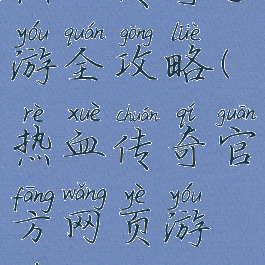 yóu quán gōng lüè
游全攻略(
rè xuè chuán qí guān
热血传奇官
fāng wǎng yè yóu
方网页游